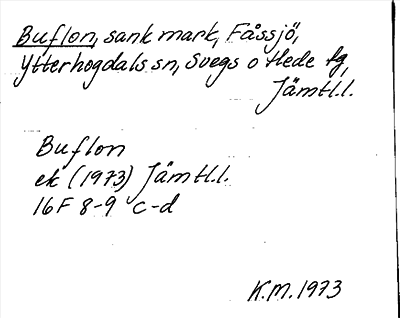 Buflon, sank mark, Fåssjö,
Ytterhogdals sn, Svegs o Hede tg,
Jämtl.l.
Buflon
ek (1973) Jämtl.l.
16F 8-9 c-d
K.M. 1973